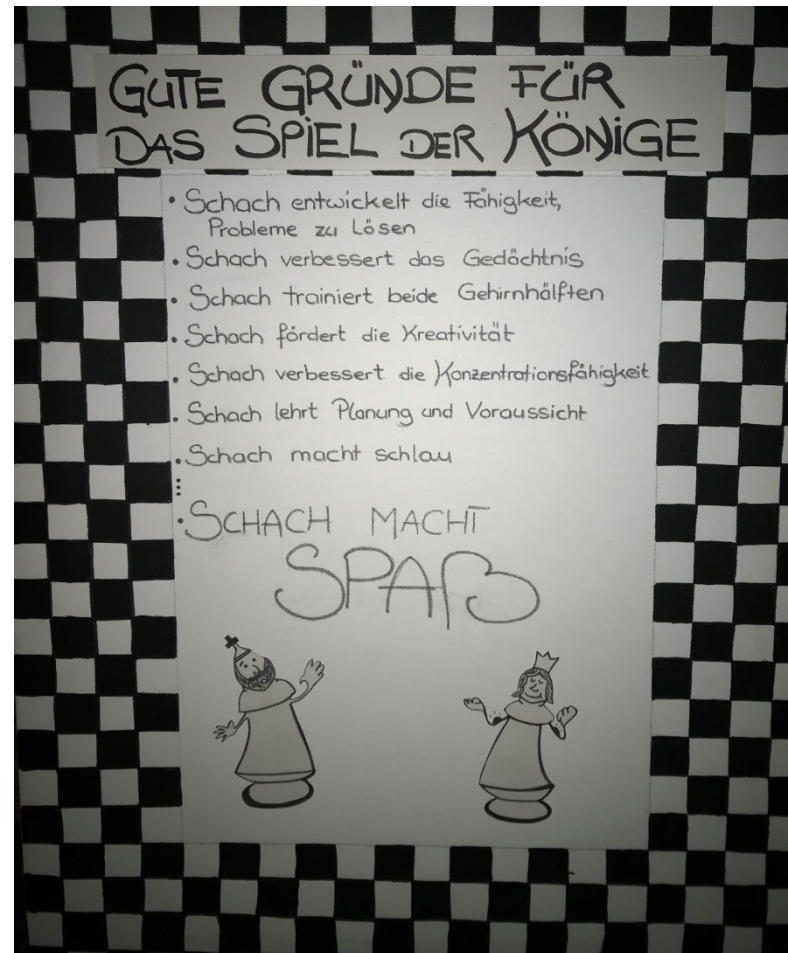 GUTE GRÜNDE FÜR
DAS SPIEL DER KÖNIGE
• Schach entwickelt die Fähigkeit,
Probleme zu Lösen
• Schach verbessert das Gedächtnis
• Schach trainiert beide Gehirnhälften
• Schach fördert die Kreativität
• Schach verbessert die Konzentrationsfähigkeit
• Schach lehrt Planung und Voraussicht
• Schach macht schlau
⋮
• SCHACH MACHT
SPAß